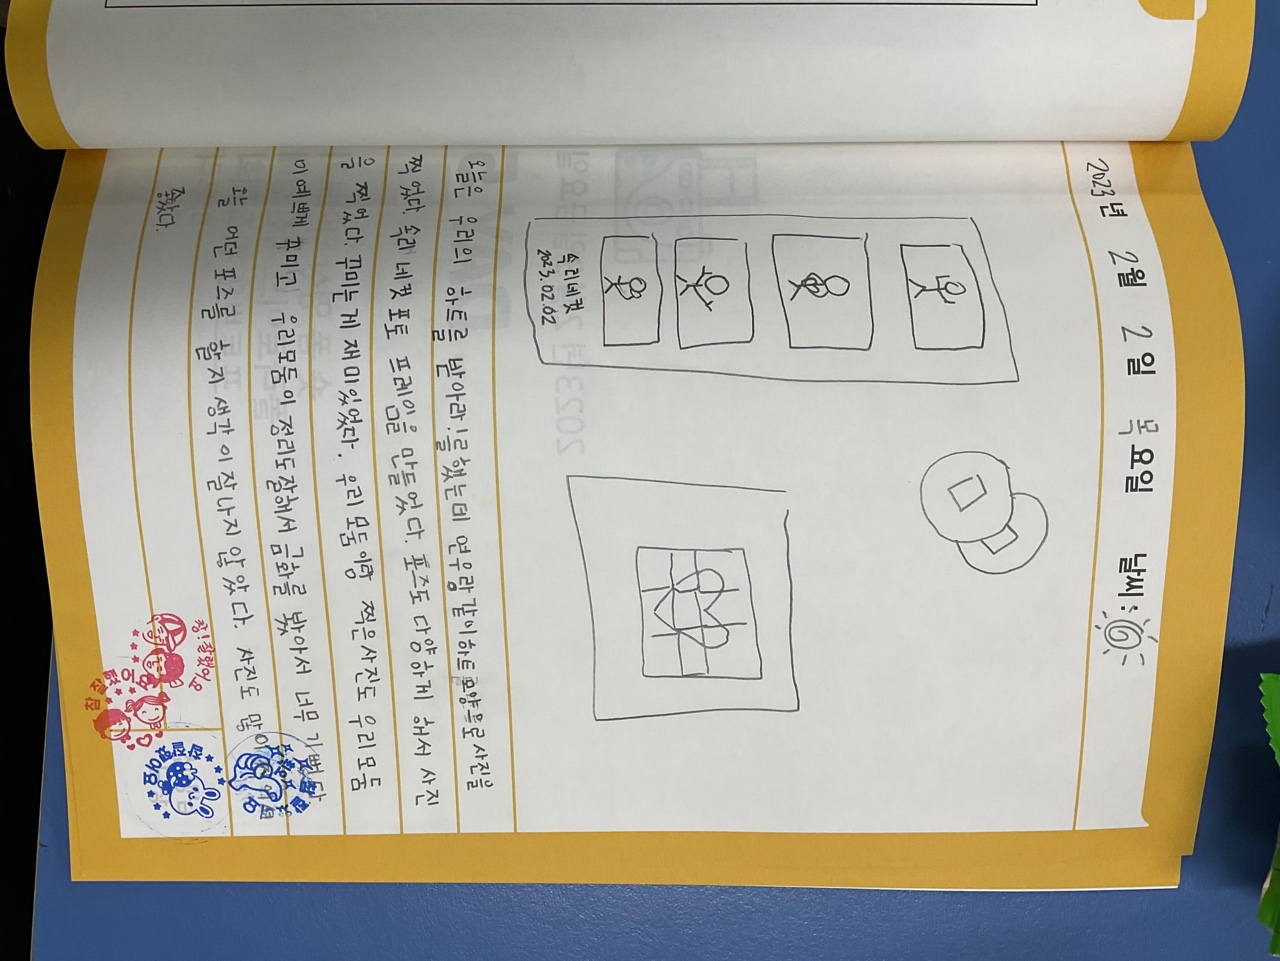 2023년 2월 2일 목요일 날씨:
속리네컷
2023.02.02
오늘은 우리의 하트를 받아라!를했는데 연우랑같이하트모양으로사진을
찍었다. 속리네컷포토 프레임을 만들었다. 포즈도 다양하게 해서 사진
을 찍었다. 꾸미는게 재미있었다. 우리모둠이랑 찍은사진도 우리모둠
이예쁘게 꾸미고 우리모둠이 정리도잘해서 금화를 봤아서 너무 기뻤다.
오늘 어떤포즈를 할지생각이잘나지않았다. 사진도 많이
좋았다.
참!잘했어요
참잘했어요